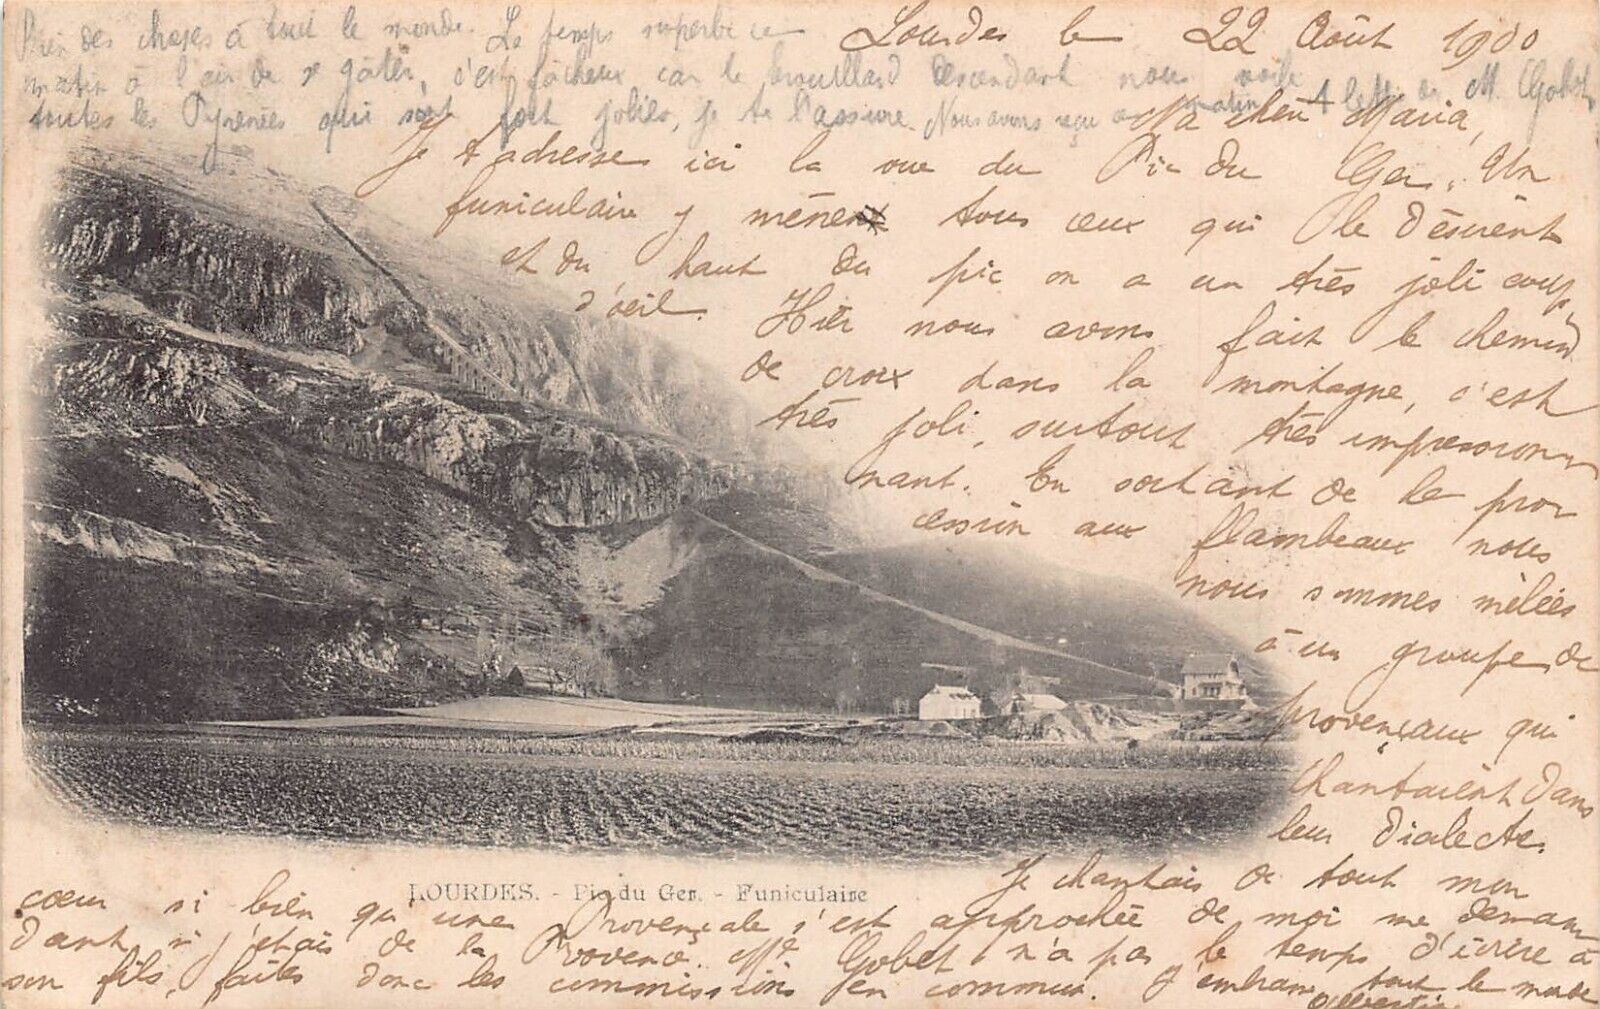 Lourdes le 22 Août 1900
Ma chère Maria,
Je t'adresse ici la vue du Pic du Ger. Un
funiculaire y mène tous ceux qui le désirent
et du haut du pic on a un très joli coup
d'oeil. Hier nous avons fait le chemin
de croix dans la montagne, c'est
très joli, surtout très impression
nant. En sortant de la pro
cession aux flambeaux nous
nous sommes mêlées
à un groupe de
provençaux qui
chantaient dans
leur dialecte.
Je chantais de tout mon
coeur si bien qu'une Provençale s'est approchée de moi me deman
dant si j'étais de la Provence. Mme Gobet n'a pas le temps d'écrire à
son fils, faites donc les commissions en commun. J'embrasse tout le monde
LOURDES. - Pic du Ger. - Funiculaire
Bien des choses à tout le monde. Le temps superbe ce
matin à l'air de se gâter, c'est fâcheux car le brouillard descendant nous voile
toutes les Pyrénées qui sont fort jolies, je te l'assure. Nous avons reçu ce matin 1 lettre de M. Gobet